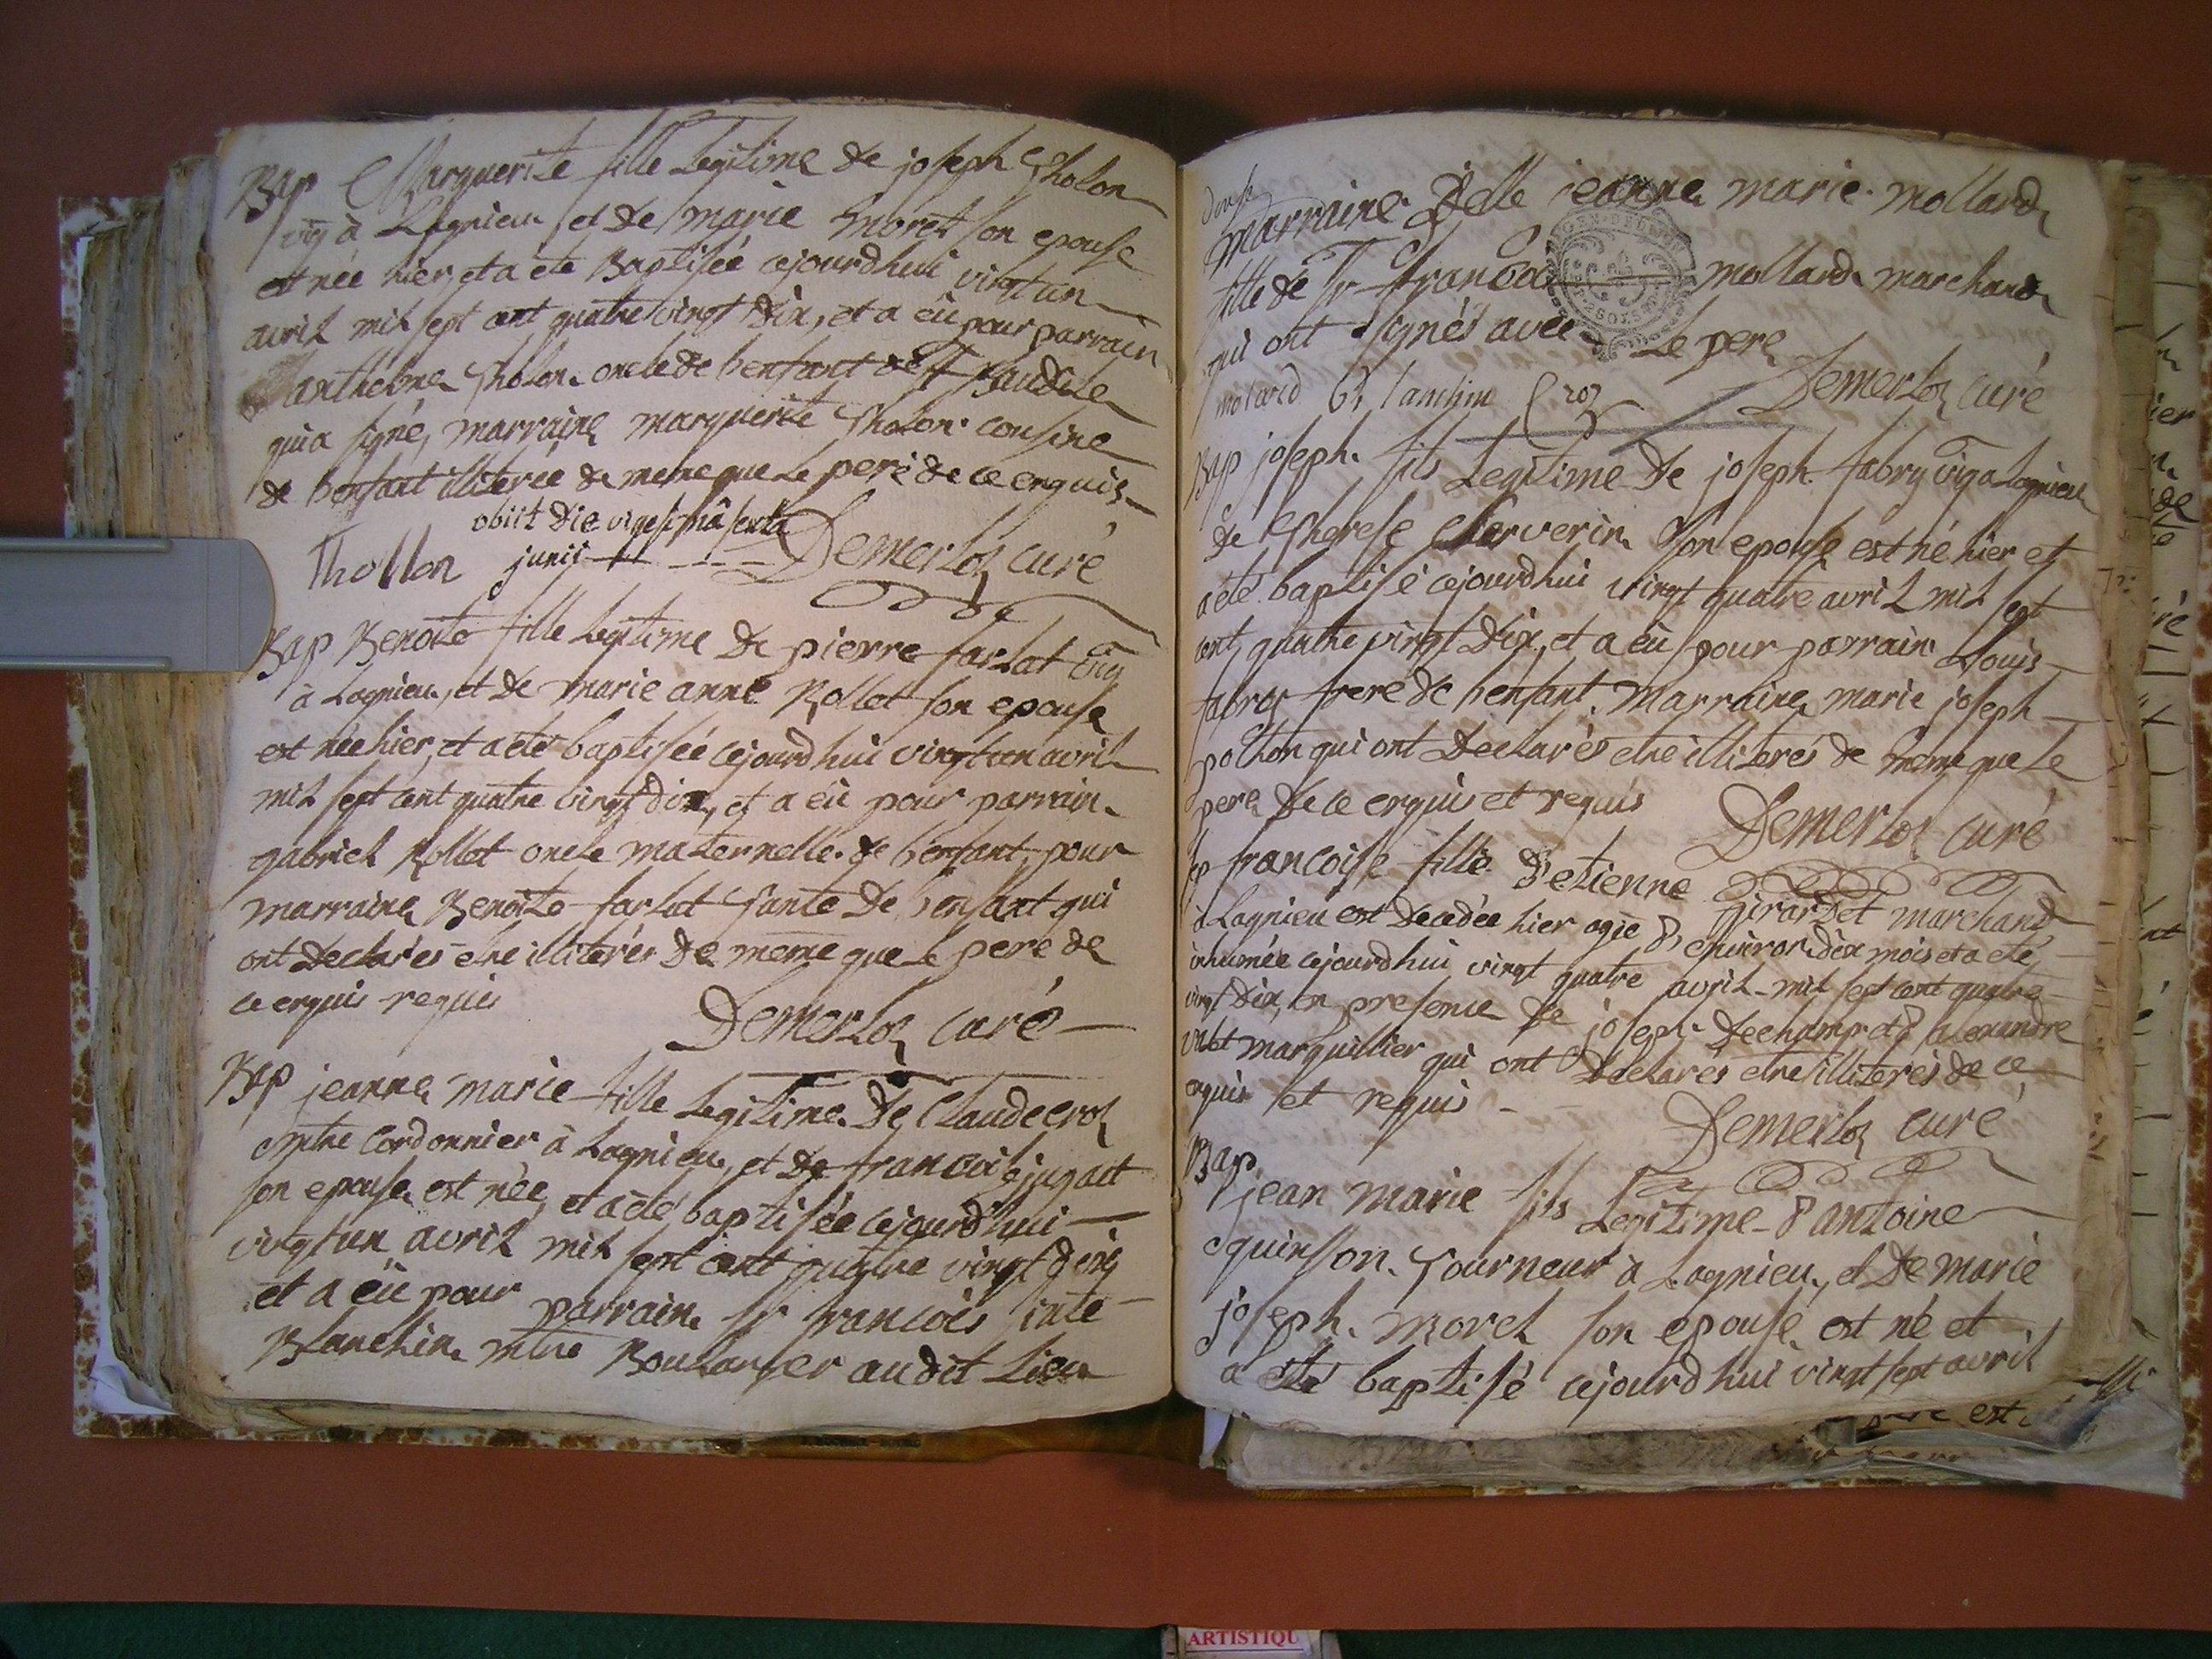 Bap Marguerite fille Legitime de joseph Tholon
vig à Lagnieu et de marie moret son epouse
est née hier, et a ete Baptisée cejourdhui vingt un
avril mil sept cent quatre vingt dix, et a eü pour parrain
anthelme Tholon oncle de l'enfant
qui a signé, marraine marguerite Tholon cousine
de l'enfant illiterée de meme que le pere de ce enquis
obiit die vigesimâ sexta
Thollon junii Demerloz curé
Bap Benoite fille Legitime de pierre farlat vig
à Lagnieu, et de marie anne Rollet son epouse
est née hier, et a eté baptisée cejourdhui vingt un avril
mil sept cent quatre vingt dix, et a eü pour parrain
gabriel Rollet oncle maternelle de l'enfant, pour
marraine Benoite farlat Tante de l'enfant qui
ont declarés etre illiterés de meme que le pere de
ce enquis requis
Demerloz curé
Bap jeanne marie fille Legitime de Claude croz
mtre cordonnier à Lagnieu, et de francoise jugat
son epouse est née, et a eté baptisée cejourdhui
vingt un avril mil sept cent quatre vingt dix
et a eü pour parrain sr francois inte
Blanchin mtre Boulanger audit Lieu
marraine Delle jeanne marie mollard
fille de sr francois mollard marchand
qui ont signés avec Le pere
molard Blanchin Croz Demerloz curé
Bap joseph fils Legitime de joseph fabry vig a Lagnieu
de Therese Cherverin son epouse est né hier et
a eté baptisé cejourdhui vingt quatre avril mil sept
cent quatre vingt dix, et a eü pour parrain Louis
fabry frere de l'enfant, Marraine marie joseph
polhon qui ont declarés etre illiterés de meme que le
pere de ce enquis et requis Demerloz curé
francoise fille d'etienne girardet marchand
à Lagnieu est decedée hier agée d'environ dix mois et a eté
inhumée cejourdhui vingt quatre avril mil sept cent quatre
vingt dix, en presence de joseph Dechamp et d'alexandre
valet marguillier qui ont declarés etre illiterés de ce
enquis et requis
Demerloz curé
Bap
jean marie fils Legitime d'antoine
quinson Tourneur à Lagnieu, et de marie
joseph morel son epouse est né et
a eté baptisé cejourdhui vingt sept avril
ARTISTIQU